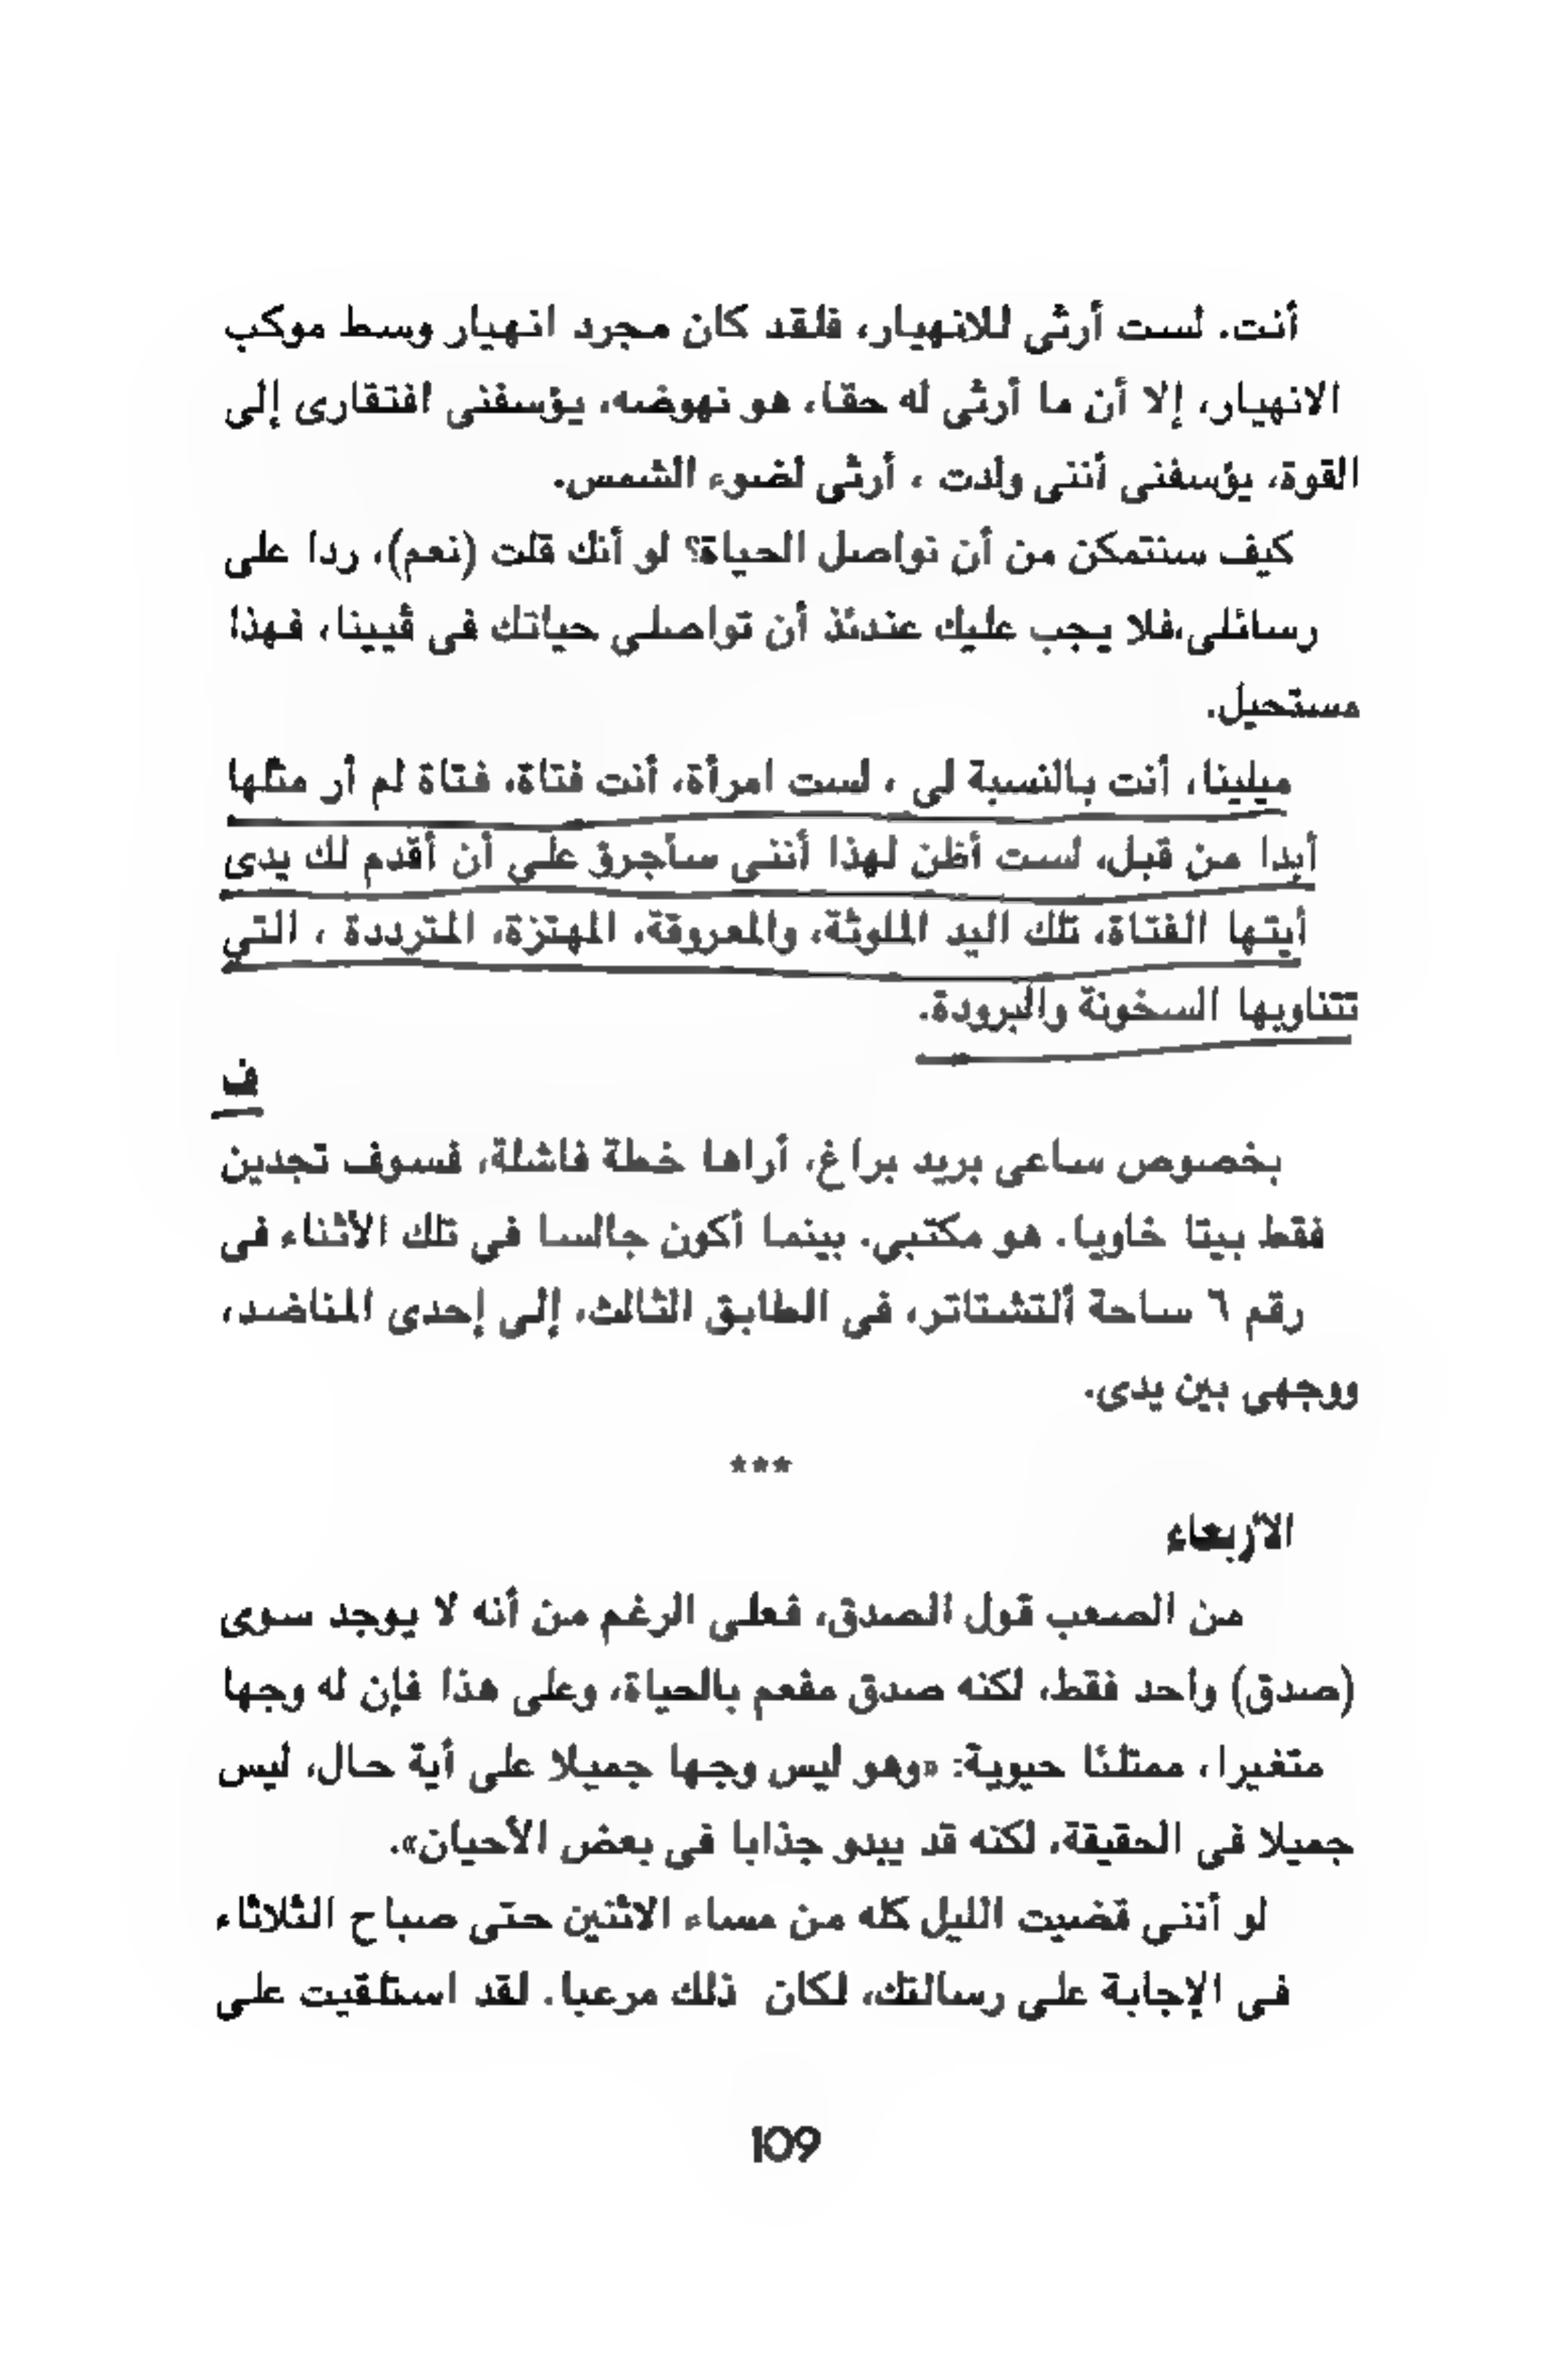 أنت. لست أرثى للانهيار، فلقد كان مجرد انهيار وسط موكب
الانهيار، إلا أن ما أرثى له حقا، هو نهوضه، يؤسفنى افتقارى إلى
القوة، يؤسفنى أننى ولدت ، أرثى لضوء الشمس.
كيف سنتمكن من أن نواصل الحياة؟ لو أنك قلت (نعم)، ردا على
رسائلى،فلا يجب عليك عندئذ أن تواصلى حياتك فى ڤيينا، فهذا
مستحيل.
ميلينا، أنت بالنسبة لى ، لست امرأة، أنت فتاة، فتاة لم أر مثلها
أبدا من قبل، لست أظن لهذا أننى سأجرؤ على أن أقدم لك يدى
أيتها الفتاة، تلك اليد الملوثة، والمعروقة، المهتزة، المترددة ، التى
تتناوبها السخونة والبرودة.
ف
بخصوص ساعى بريد براغ، أراها خطة فاشلة، فسوف تجدين
فقط بيتا خاويا. هو مكتبى. بينما أكون جالسا فى تلك الأثناء فى
رقم ٦ ساحة ألتشتاتر، فى الطابق الثالث، إلى إحدى المناضد،
ووجهى بين يدى.
***
الأربعاء
من الصعب قول الصدق، فعلى الرغم من أنه لا يوجد سوى
(صدق) واحد فقط، لكنه صدق مفعم بالحياة، وعلى هذا فإن له وجها
متغيرا، ممتلئا حيوية: «وهو ليس وجها جميلا على أية حال، ليس
جميلا فى الحقيقة، لكنه قد يبدو جذابا فى بعض الأحيان».
لو أننى قضيت الليل كله من مساء الاثنين حتى صباح الثلاثاء
فى الإجابة على رسالتك، لكان ذلك مرعبا. لقد استلقيت على
109